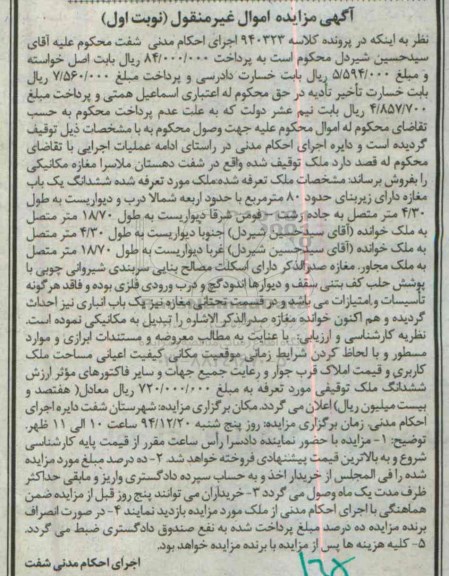 آگهی مزایده اموال غیرمنقول (نوبت اول)
نظر به اینکه در پرونده کلاسه ۹۴۰۳۲۳ اجرای احکام مدنی شفت محکوم علیه آقای
سیدحسین شیردل محکوم است به پرداخت ۸۴/۰۰۰/۰۰۰ ریال بابت اصل خواسته
و مبلغ ۵/۵۹۴/۰۰۰ ریال بابت خسارت دادرسی و پرداخت مبلغ ۷/۵۶۰/۰۰۰ ریال
بابت خسارت تأخیر تأدیه در حق محکوم له اعتباری اسماعیل همتی و پرداخت مبلغ
۴/۸۵۷/۷۰۰ ریال بابت نیم عشر دولت که به علت عدم پرداخت محکوم به حسب
تقاضای محکوم له اموال محکوم علیه جهت وصول محکوم به با مشخصات ذیل توقیف
گردیده است و دایره اجرای احکام مدنی در راستای ادامه عملیات اجرایی با تقاضای
محکوم له قصد دارد ملک توقیف شده واقع در شفت دهستان ملاسرا مغازه مکانیکی
را بفروش برساند: مشخصات ملک تعرفه شده:ملک مورد تعرفه شده ششدانگ یک باب
مغازه دارای زیربنای حدود ۸۰ مترمربع با حدود اربعه شمالا درب و دیواریست به طول
۴/۳۰ متر متصل به جاده رشت – فومن شرقا دیواریست به طول ۱۸/۷۰ متر متصل
به ملک خوانده (آقای سیدحسین شیردل) جنوبا دیواریست به طول ۴/۳۰ متر متصل
به ملک خوانده (آقای سیدحسین شیردل) غربا دیواریست به طول ۱۸/۷۰ متر متصل
به ملک مجاور. مغازه صدرالذکر دارای اسکلت مصالح بنایی سربندی شیروانی چوبی با
پوشش حلب کف بتنی سقف و دیوارها اندودگچ و درب ورودی فلزی بوده و فاقد هرگونه
تأسیسات وامتیازات می باشد و در قسمت تحتانی مغازه نیز یک باب انباری نیز احداث
گردیده و هم اکنون خوانده مغازه صدرالذکر الاشاره را تبدیل به مکانیکی نموده است.
نظریه کارشناسی و ارزیابی: با عنایت به مطالب معروضه و مستندات ابرازی و موارد
مسطور و با لحاظ کردن شرایط زمانی موقعیت مکانی کیفیت اعیانی مساحت ملک
کاربری و قیمت املاک قرب جوار و رعایت جمیع جهات و سایر فاکتورهای مؤثر ارزش
ششدانگ ملک توقیفی مورد تعرفه به مبلغ ۷۲۰/۰۰۰/۰۰۰ ریال معادل( هفتصد و
بیست میلیون ریال) اعلان می گردد. مکان برگزاری مزایده: شهرستان شفت دایره اجرای
احکام مدنی. زمان برگزاری مزایده: روز پنج شنبه ۹۴/۱۲/۲۰ ساعت ۱۰ الی ۱۱ ظهر.
توضیح: ۱- مزایده با حضور نماینده دادسرا رأس ساعت مقرر از قیمت پایه کارشناسی
شروع و به بالاترین قیمت پیشنهادی فروخته خواهد شد. ۲- ده درصد مبلغ مورد مزایده
شده را فی المجلس از خریدار اخذ و به حساب سپرده دادگستری واریز و مابقی حداکثر
ظرف مدت یک ماه وصول می گردد ۳- خریداران می توانند پنج روز قبل از مزایده ضمن
هماهنگی با اجرای احکام مدنی از ملک مورد مزایده بازدید نمایند ۴- در صورت انصراف
برنده مزایده ده درصد مبلغ پرداخت شده به نفع صندوق دادگستری ضبط می گردد.
۵- کلیه هزینه ها پس از مزایده با برنده مزایده خواهد بود.
اجرای احکام مدنی شفت